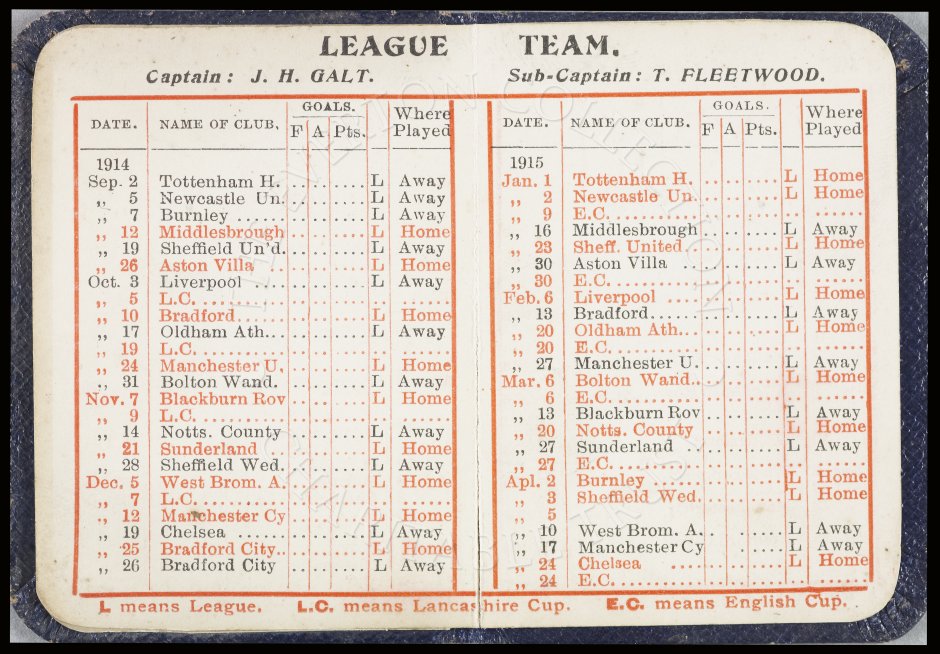 LEAGUE TEAM.
Captain: J. H. GALT. Sub-Captain: T. FLEETWOOD.
DATE. NAME OF CLUB. GOALS. F A Pts. Where Played
1914
Sep. 2 Tottenham H. ........ L Away
„ 5 Newcastle Un. ........ L Away
„ 7 Burnley ........ L Away
„ 12 Middlesbrough ........ L Home
„ 19 Sheffield Un'd. ........ L Away
„ 26 Aston Villa ........ L Home
Oct. 3 Liverpool ........ L Away
„ 5 L.C. ........
„ 10 Bradford ........ L Home
„ 17 Oldham Ath. ........ L Away
„ 19 L.C. ........
„ 24 Manchester U. ........ L Home
„ 31 Bolton Wand. ........ L Away
Nov. 7 Blackburn Rov ........ L Home
„ 9 L.C. ........
„ 14 Notts. County ........ L Away
„ 21 Sunderland ........ L Home
„ 28 Sheffield Wed. ........ L Away
Dec. 5 West Brom. A. ........ L Home
„ 7 L.C. ........
„ 12 Manchester Cy ........ L Home
„ 19 Chelsea ........ L Away
„ 25 Bradford City.. ........ L Home
„ 26 Bradford City ........ L Away
DATE. NAME OF CLUB. GOALS. F A Pts. Where Played
1915
Jan. 1 Tottenham H. ........ L Home
„ 2 Newcastle Un. ........ L Home
„ 9 E.C. ........
„ 16 Middlesbrough ........ L Away
„ 23 Sheff. United. ........ L Home
„ 30 Aston Villa ........ L Away
„ 30 E.C. ........
Feb. 6 Liverpool ........ L Home
„ 13 Bradford ........ L Away
„ 20 Oldham Ath. ........ L Home
„ 20 E.C. ........
„ 27 Manchester U. ........ L Away
Mar. 6 Bolton Wand. ........ L Home
„ 6 E.C. ........
„ 13 Blackburn Rov ........ L Away
„ 20 Notts. County ........ L Home
„ 27 Sunderland ........ L Away
„ 27 E.C. ........
Apl. 2 Burnley ........ L Home
„ 3 Sheffield Wed. ........ L Home
„ 5
„ 10 West Brom. A. ........ L Away
„ 17 Manchester Cy ........ L Away
„ 24 Chelsea ........ L Home
„ 24 E.C. ........
L means League. L.C. means Lancashire Cup. E.C. means English Cup.